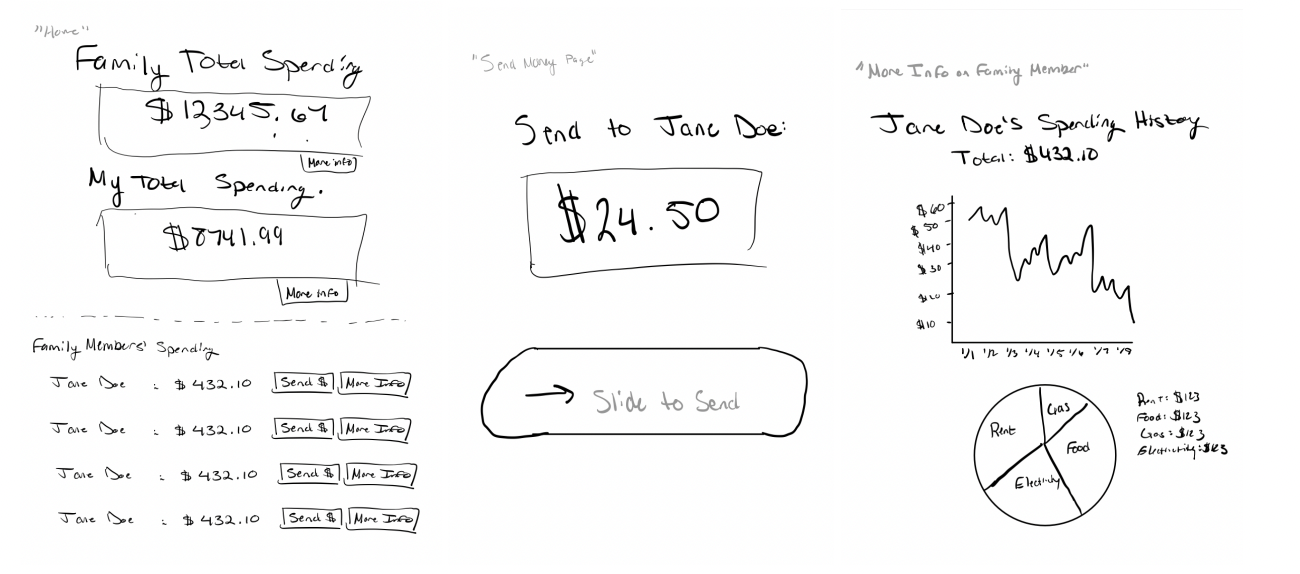 "Home"
Family Total Spending
$12345.67
More info
My Total Spending.
$8741.99
More info
Family Members' Spending
Jane Doe : $432.10 Send $ More Info
Jane Doe : $432.10 Send $ More Info
Jane Doe : $432.10 Send $ More Info
Jane Doe : $432.10 Send $ More Info
"Send Money Page"
Send to Jane Doe:
$24.50
→ Slide to Send
"More Info on Family Member"
Jane Doe's Spending History
Total: $432.10
$60
$50
$40
$30
$20
$10
1/1 1/2 1/3 1/4 1/5 1/6 1/7 1/8
Gas
Rent
Food
Electricity
Rent: $123
Food: $123
Gas: $123
Electricity: $123